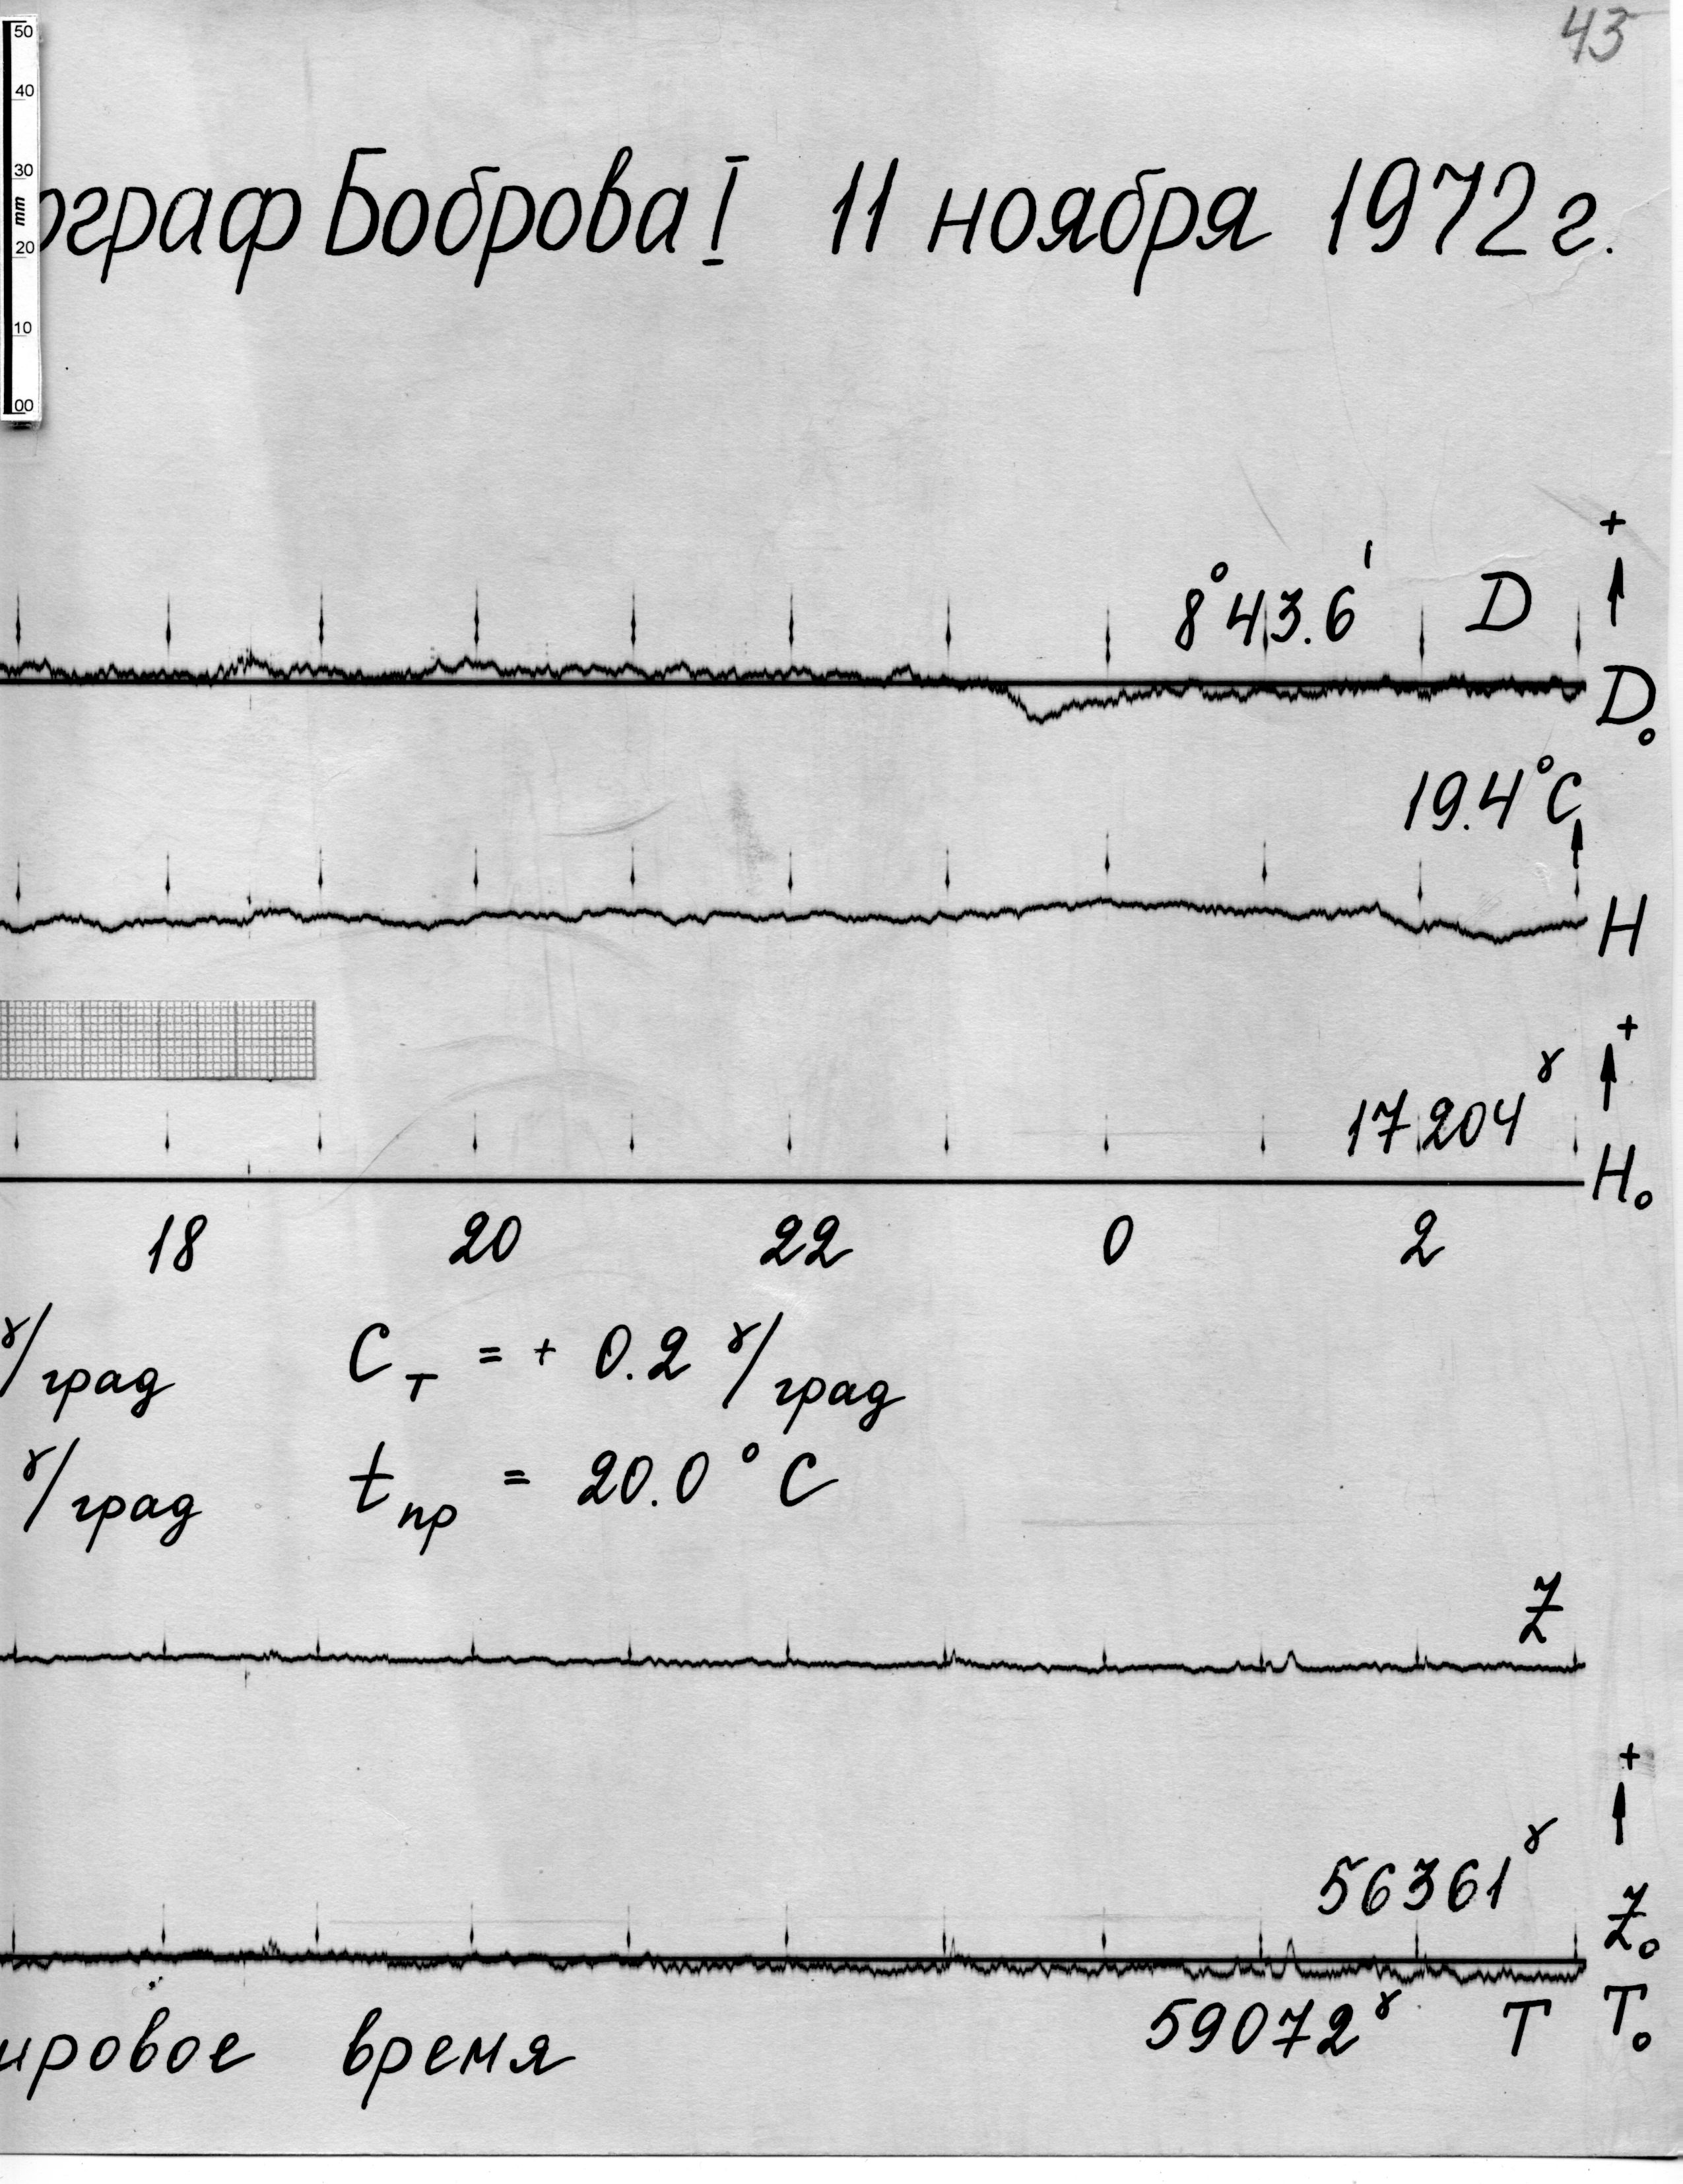 43
50
40
30
mm
20
10
00
ограф Боброва I 11 ноября 1972 г.
+
8°43.6' D
D₀
19.4°C
H
+
17204 γ
H₀
18 20 22 0 2
γ/град Cт = + 0.2 γ/град
γ/град tпр = 20.0 °C
Z
+
56361 γ
Z₀
59072 γ T T₀
ировое время